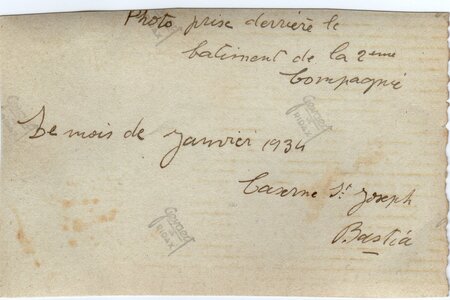 Photo prise derrière le
batiment de la 2eme
Compagnie
Le mois de Janvier 1934
Caserne St Joseph
Bastia
RIDAX
RIDAX